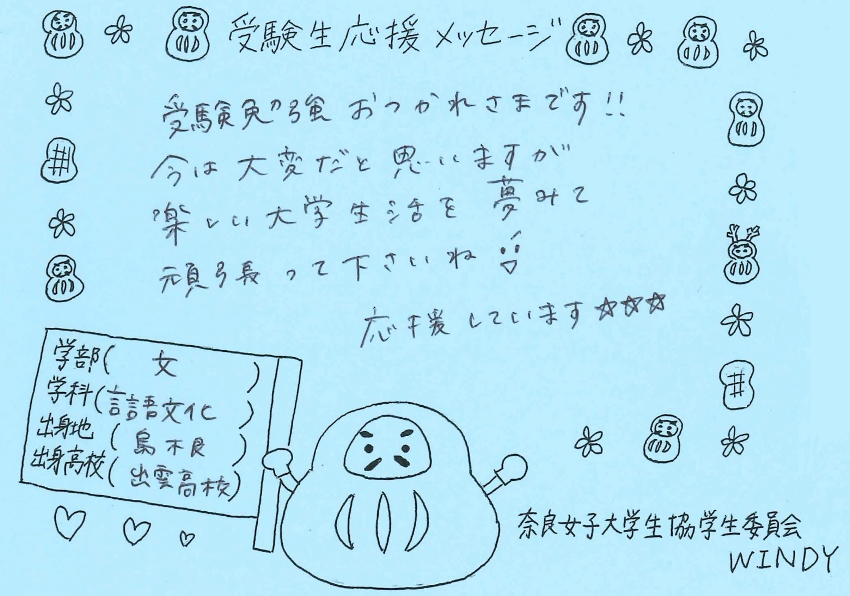 受験生応援メッセージ
受験勉強おつかれさまです!!
今は大変だと思いますが
楽しい大学生活を夢みて
頑張って下さいね
応援しています☆☆☆
学部(文)
学科(言語文化)
出身地(島根県)
出身高校(出雲高校)
奈良女子大学生協学生委員会
WINDY